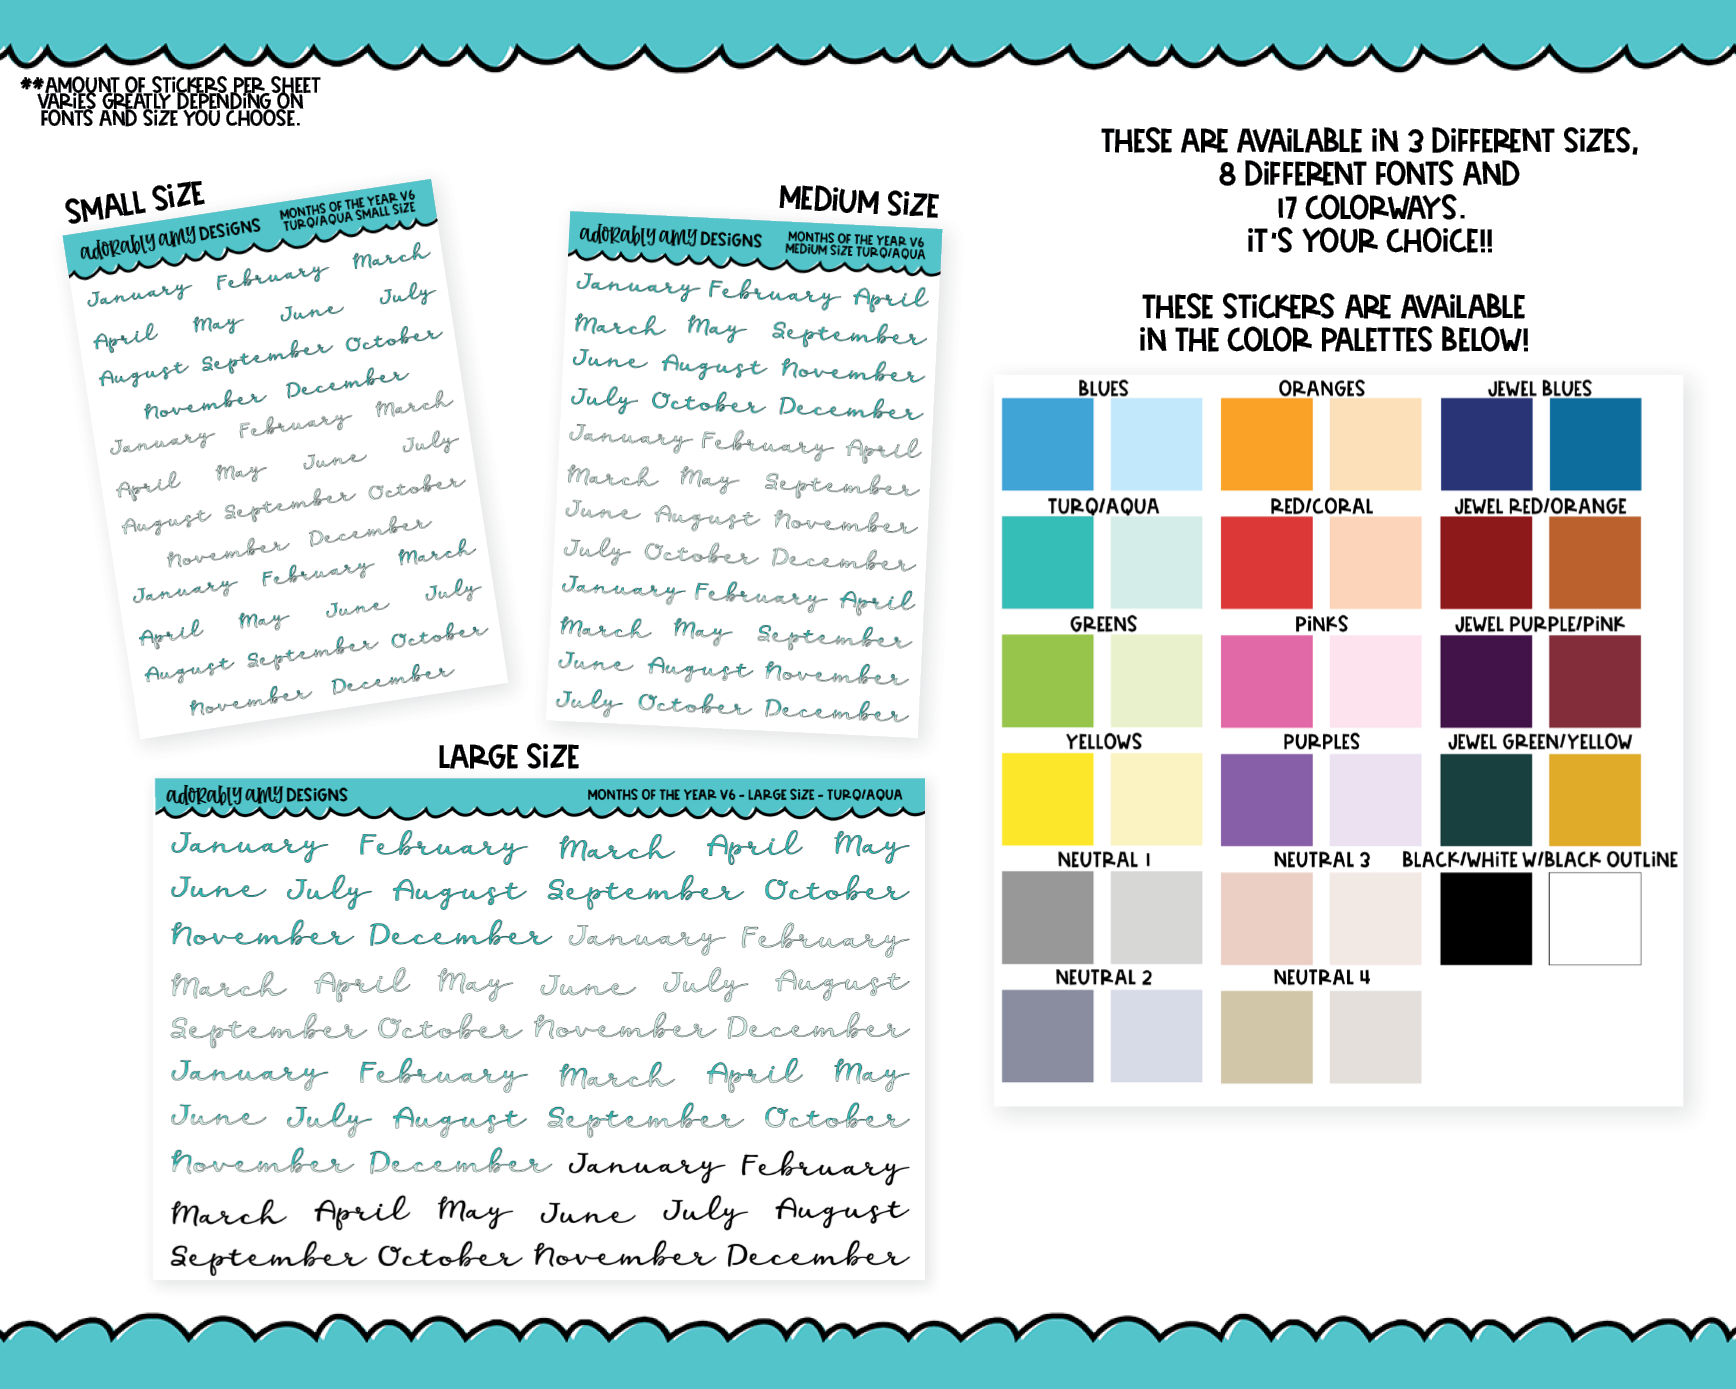 **AMOUNT OF STiCKERS PER SHEET
VARiES GREATLY DEPENDiNG ON
FONTS AND SiZE YOU CHOOSE.
SMALL SiZE
adORably amy DESiGNS
MONTHS OF THE YEAR V6
TURQ/AQUA SMALL SiZE
January February March
April May June July
August September October
November December
January February March
April May June July
August September October
November December
January February March
April May June July
August September October
November December
MEDiUM SiZE
adORably amy DESiGNS
MONTHS OF THE YEAR V6
MEDiUM SiZE TURQ/AQUA
January February April
March May September
June August November
July October December
January February April
March May September
June August November
July October December
January February April
March May September
June August November
July October December
LARGE SiZE
adORably amy DESiGNS
MONTHS OF THE YEAR V6 - LARGE SiZE - TURQ/AQUA
January February March April May
June July August September October
November December January February
March April May June July August
September October November December
January February March April May
June July August September October
November December January February
March April May June July August
September October November December
THESE ARE AVAiLABLE iN 3 DiFFERENT SiZES,
8 DiFFERENT FONTS AND
17 COLORWAYS.
iT'S YOUR CHOiCE!!
THESE STiCKERS ARE AVAiLABLE
iN THE COLOR PALETTES BELOW!
BLUES ORANGES JEWEL BLUES
TURQ/AQUA RED/CORAL JEWEL RED/ORANGE
GREENS PiNKS JEWEL PURPLE/PiNK
YELLOWS PURPLES JEWEL GREEN/YELLOW
NEUTRAL 1 NEUTRAL 3 BLACK/WHiTE W/BLACK OUTLiNE
NEUTRAL 2 NEUTRAL 4